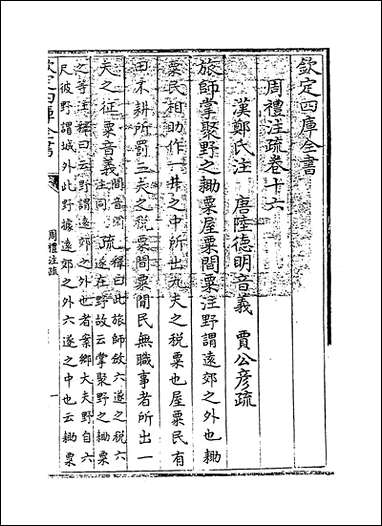 欽定四庫全書
周禮注疏卷十六
漢鄭氏注　唐陸德明音義　賈公彦疏
旅師掌聚野之耡粟屋粟閒粟注野謂遠郊之外也耡
粟民相助作一井之中所出九夫之税粟也屋粟民有
田不耕所罰三夫之税粟閒粟閒民無職事者所出一
夫之征粟音義閒音閑注同疏釋曰此旅師放六遂之税六遂在野故云掌聚野之耡粟
之等注釋曰云野謂遠郊之外也者案鄉大夫野自六
尺彼野謂城外此野據遠郊之外六遂之中也云耡粟
欽定四庫全書
周禮注疏
一